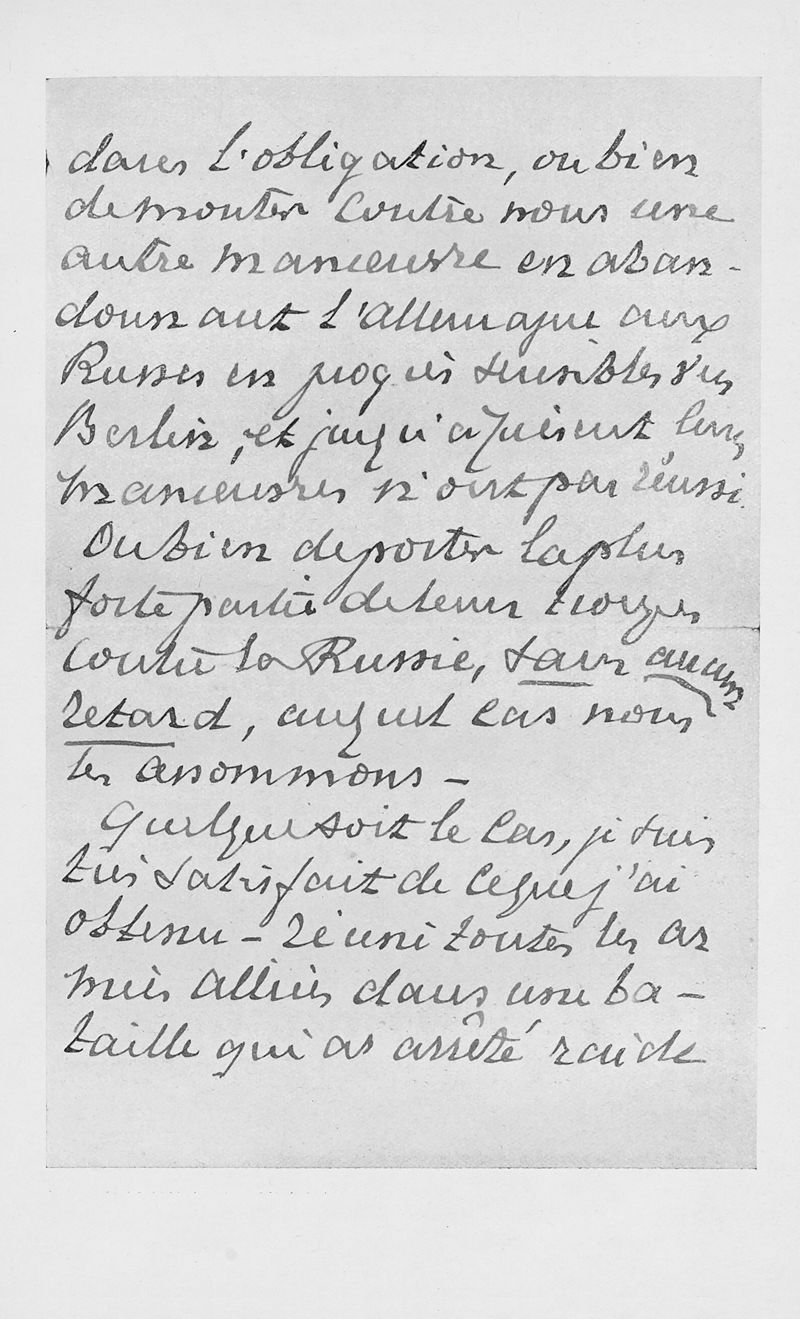 dans l'obligation, ou bien
de monter contre nous une
autre manœuvre en aban-
donnant l'Allemagne aux
Russes en progrès sensibles vers
Berlin, et jusqu'à présent leurs
manœuvres n'ont pas réussi.
Ou bien de porter la plus
forte partie de leurs troupes
contre la Russie, sans aucun
retard, auquel cas nous
les assommons -
Quelque soit le cas, je suis
très satisfait de ce que j'ai
obtenu - réuni toutes les ar
mées alliées dans une ba-
taille qui as arrêté raide